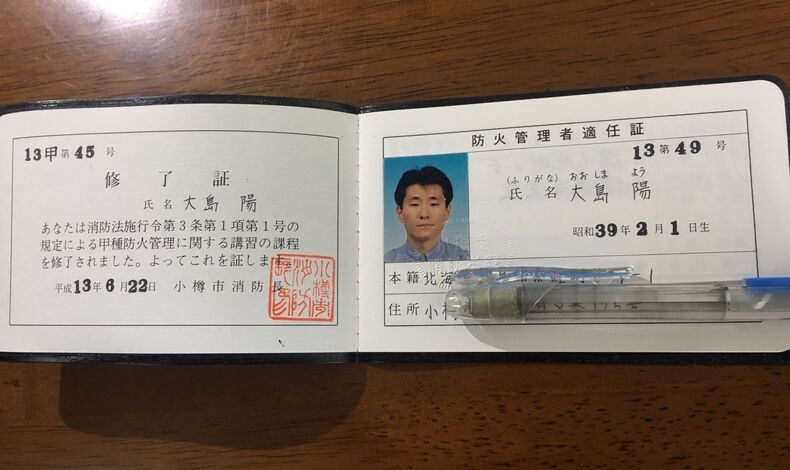 13甲第45号
修了証
氏名 大島 陽
あなたは消防法施行令第3条第1項第1号の
規定による甲種防火管理に関する講習の課程
を修了されました。よってこれを証します
平成13年6月22日 小樽市消防長
防火管理者適任証
13第49号
(ふりがな) おおしま よう
氏名 大島 陽
昭和39年2月1日生
本籍 北海
住所 小樽